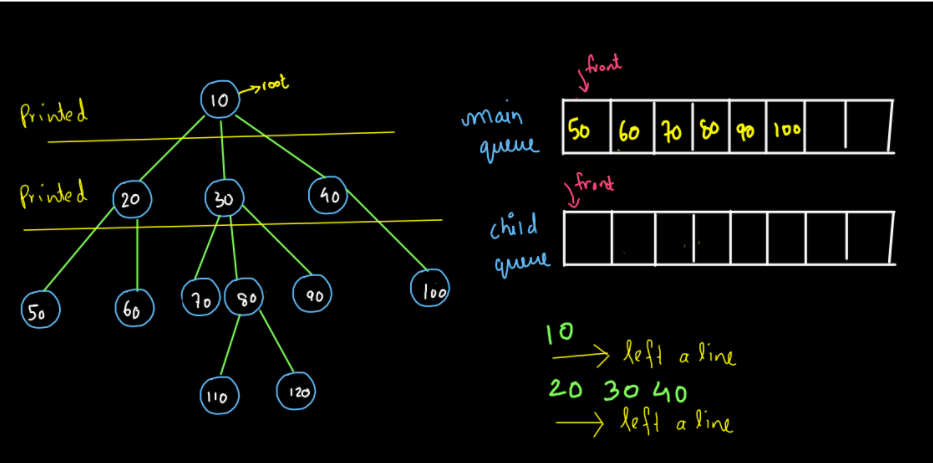 Printed
10
root
Printed
20 30 40
50 60 70 80 90 100
110 120
front
main queue
50 60 70 80 90 100
front
child queue
10
left a line
20 30 40
left a line